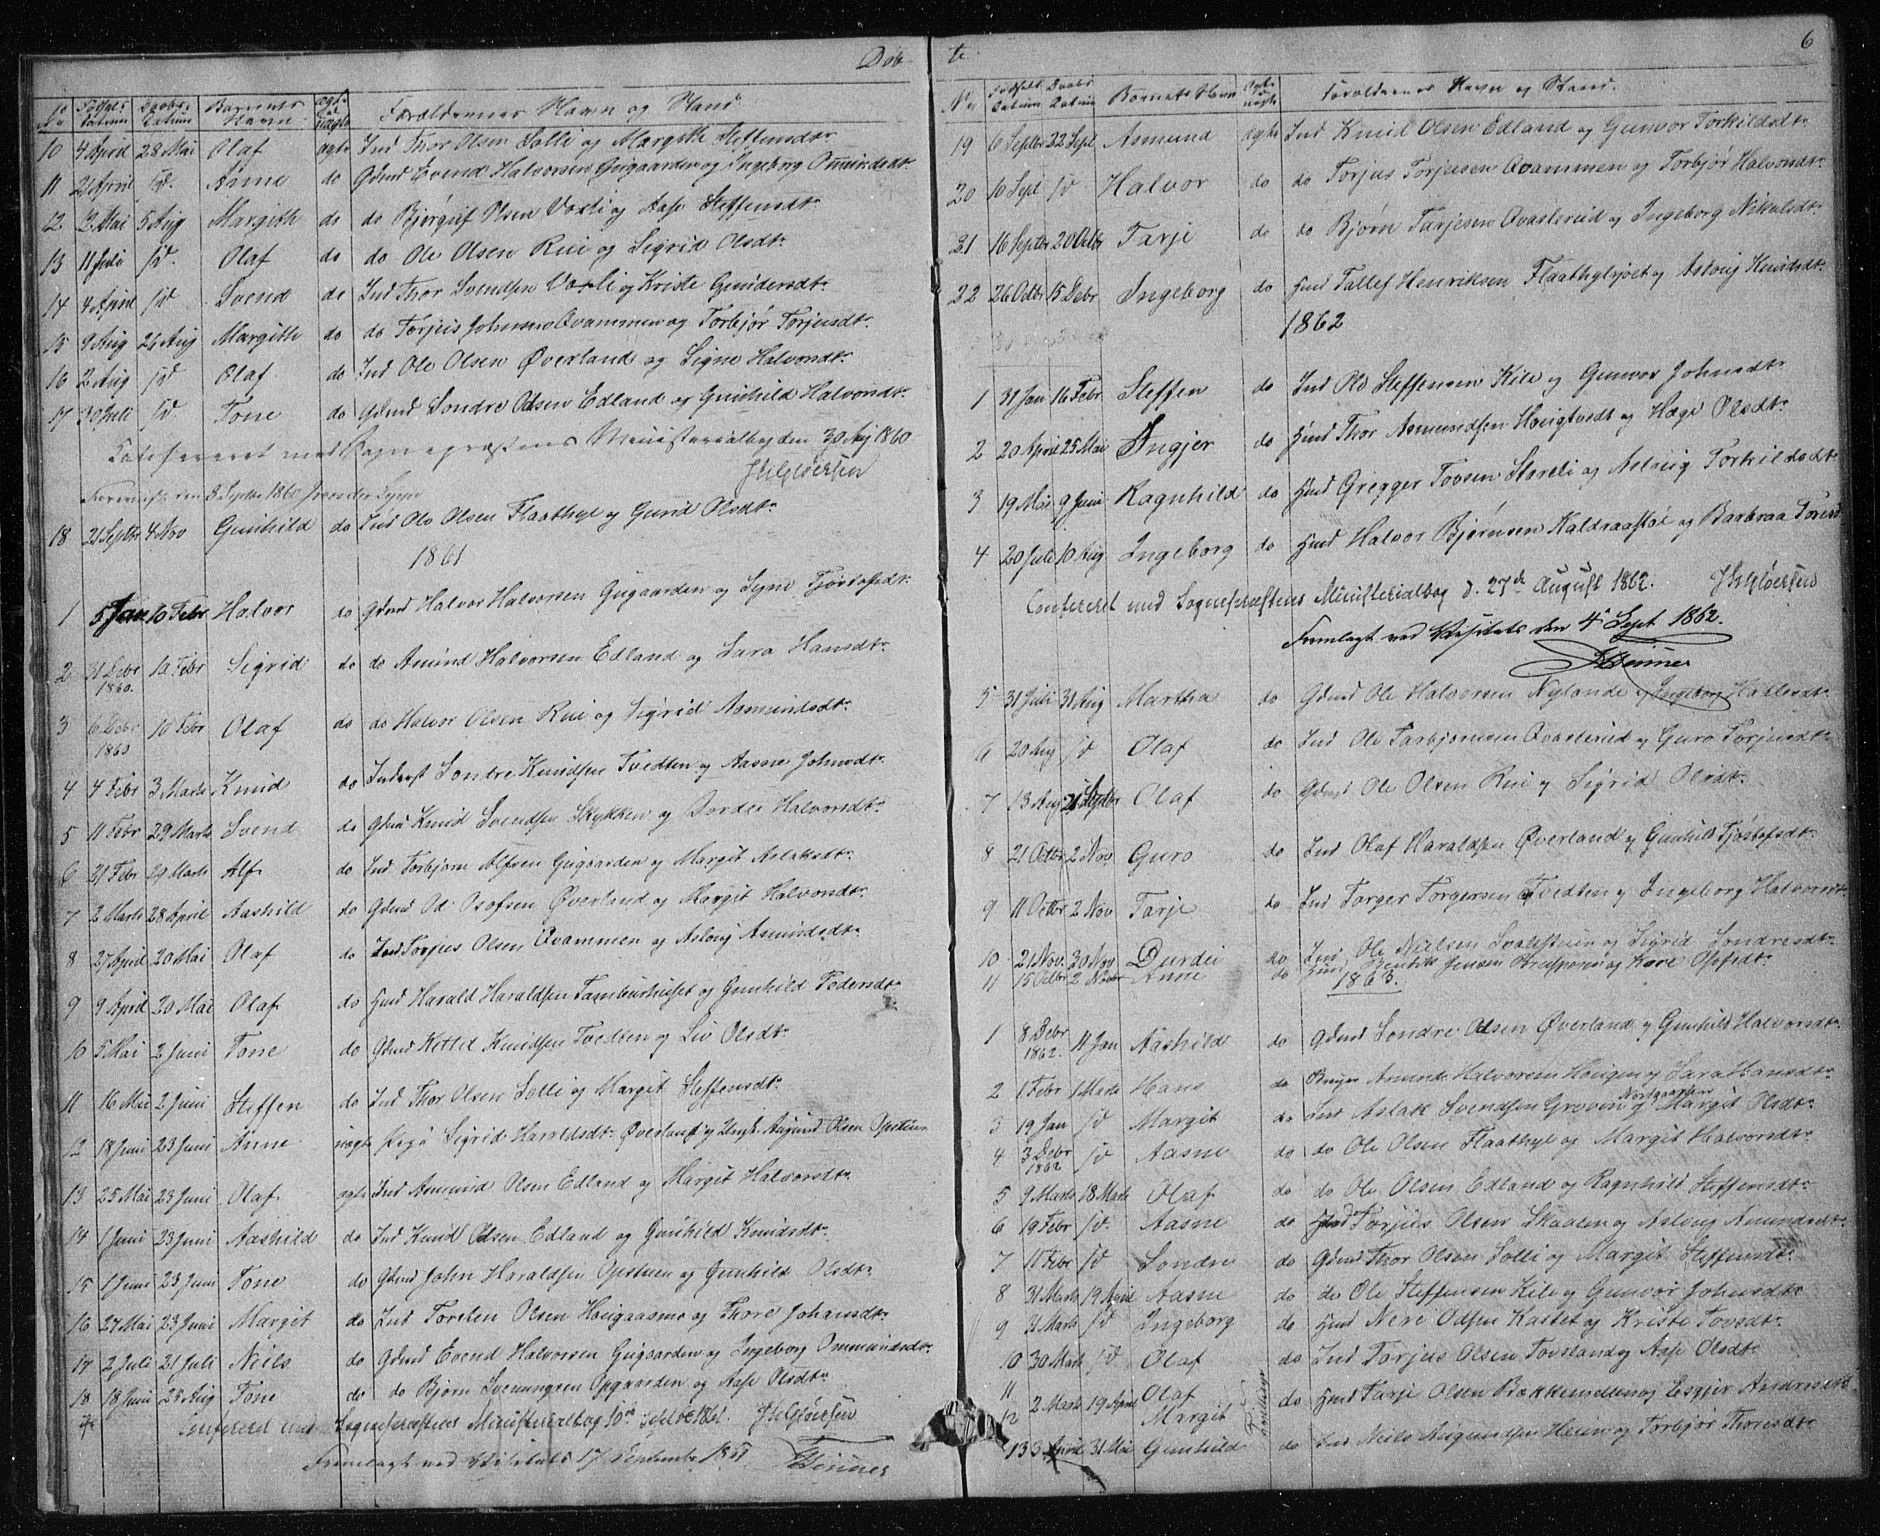 Døb-
No Fødsels Datum Daabs Datum Barnenes Navn ægte el. uægte Forældrenes Navn og Stand
10 4 April 28 Mai Olaf ægte Ind Thor Olsen Solli og Margith Steffensdtr
11 21 April sd. Anne do Gdmd Evend Halvorsen Gugaarden og Ingeborg Omundsdtr
12 2 Mai 5 Aug Margith do do Bjørguf Olsen Vaxli og Aase Steffensdtr
13 11 Juli sd. Olaf do do Ole Olsen Rui og Sigrid Olsdtr
14 4 April sd Svend do Ind Thor Svendsen Vaxli og Kriste Gundersdtr
15 9 Aug 26 Aug Margith do do Torjus Johnsen Qvammen og Torbjør Torjusdtr
16 2 Aug sd Olaf do Ind Ole Olsen Øverland og Signe Halvorsdtr
17 30 Juli sd Tone do Gdmd Sondre Olsen Edland og Gunhild Halvorsdtr
Confereret med Sognepræstens Ministerialbog den 30 Aug 1860
18 21 Septbr 4 Nov Gunhild do Ind Ole Olsen Flaathyl og Gunild Olsdtr
1861
1 5 Jan 10 Febr Halvor do Gdmd Halvor Halvorsen Gugaarden og Signe Tjøstofsdtr
2 31 Debr 1860. 10 Febr Sigrid do do Amund Halvorsen Edland og Sara Hansdtr
3 6 Debr 1860 10 Febr Olaf do do Halvor Olsen Rui og Sigrid Asmundsdtr
4 4 Febr 3 Marts Knud do Inderst Sondre Knudsen Tvedten og Aasne Johnsdtr
5 11 Febr 29 Marts Svend do Gdmd Knud Svendsen Skykken og Dordei Halvorsdtr
6 21 Febr 29 Marts Alf do Ind Torbjørn Alfsen Gugaarden og Margit Aslaksdtr
7 2 Marts 28 April Aashild do Gdmd Od Osofsen Øverland og Margit Halvorsdtr
8 27 April 20 Mai Olaf do Ind Torjus Olsen Qvammen og Aslaug Asmundsdtr
9 9 April 20 Mai Olaf do Hmd Harald Haraldsen Tamburhuset og Gunhild Pedersdtr
10 5 Mai 2 Juni Tone do Gdmd Kittil Knudsen Tvedten og Liv Olsdtr
11 16 Mai 2 Juni Steffen do Ind Thor Olsen Solli og Margit Steffensdtr
12 18 Juni 23 Juni Anne uægte Pige Sigrid Haraldsdtr Øverland og Ungk. Augund Olsen Opstuen
13 25 Mai 23 Juni Olaf ægte Ind Asmund Olsen Edland og Margit Halvorsdtr
14 1 Juni 23 Juni Aashild do Ind Knud Olsen Edland og Gunhild Knudsdtr
15 1 Juni 23 Juni Tone do Gdmd John Haraldsen Opstuen og Gunhild Olsdtr
16 27 Mai 23 Juni Margit do Ind Torsten Olsen Hougaasmo og Thore Johansdtr
17 2 Juli 21 Juli Niels do Gdmd Evend Halvorsen Gugaarden og Ingeborg Ommundsdtr
18 18 Juni 25 Aug Tone do do Bjørn Svenungsen Opgaarden og Aase Olsdtr
Confereret med Sognepræstens Ministerialbog 10de Septbr 1861.
Fremlagt ved Visitats 17 September 1861
te 6
No Fødsels Datum Daabs Datum Barnets Navn Ægte uægte Forældrenes Navn og Stand.
19 6 Septbr 22 Sept Asmund ægte Ind Knud Olsen Edland og Gunvor Torkildsdtr
20 10 Sept sd Halvor do do Torjus Torjusen Qvammen og Torbjør Halvorsdtr
21 16 Septbr 20 Octbr Tarje do do Bjørn Tarjesen Qvasterud og Ingeborg Nikulsdtr
22 26 Octbr 15 Debr Ingeborg do Hmd Tallef Henriksen Flaathylsjoet og Aslaug Knudsdtr
1862
1 31 Jan 16 Febr Steffen do Ind Ole Steffensen Kile og Gunvor Johnsdtr
2 20 April 25 Mai Ingjer do Hmd Thor Asmundsen Hougtvedt og Hæge Olsdtr
3 19 Mai 9 Juni Ragnhild do Hmd Gregger Tovsen Storeli og Aslaug Torkildsdtr
4 20 Juli 10 Aug Ingeborg do Hmd Halvor Bjørnsen Kaldraastøl og Barbraa Toresd
Confereret med Sognepræstens Ministerialbog d. 27de August 1862.
Fremlagt ved Visitats den 4 Sept 1862.
5 31 Juli 31 Aug Martha do Gdmd Ole Halvorsen Nylande og Ingeborg Halvorsdtr
6 20 Aug sd Olaf do Ind Ole Tarbjørnsen Qvasterud og Guro Torjusdtr
7 13 Aug 21 Septbr Olaf do Gdmd Ole Olsen Rui og Sigrid Olsdtr
8 21 Octbr 2 Nov Guro do Ind Olaf Haraldsen Øverland og Gunhild Tjøstofsdtr
9 11 Octbr 2 Nov Tarje do Ind Torger Torgersen Tvedten og Ingeborg Halvorsdtr
10 21 Nov. 30 Nov Durdei do Ind Ole Nielsen Svalestuen og Sigrid Sondresdtr
11 15 Octbr 2 Novbr Anne do
1863.
1 8 Debr 1862. 11 Jan Aashild do Gdmd Sondre Olsen Øverland og Gunhild Halvorsdtr
2 1 Febr 1 Marts Hans do Amund Halvorsen Hougen og Sara Hansdtr
3 19 Jan sd Margit do Ind Aslak Svendsen Groven Nordgaarden og Margit Olsdtr
4 3 Debr 1862 sd Aasne do do Ole Olsen Flaathyl og Margit Halvorsdtr
5 9 Marts 18 Marts Olaf do do Ole Olsen Edland og Ragnhild Steffensdtr
6 19 Febr sd. Aasne do Hmd Torjus Olsen Skaalen og Aslaug Amundsdtr
7 11 Febr sd Sondre do Gdmd Thor Olsen Solli og Margit Steffensdtr
8 31 Marts 19 April Aasne do do Ole Steffensen Kile og Gunvor Johnsdtr
9 31 Marts sd Ingeborg do Hmd Neri Odsen Kastet og Kriste Tovsdtr
10 30 Marts sd Olaf do Ind Torjus Olsen Tovsland og Aase Olsdtr
11 2 Marts 19 April Olaf do Hmd Tarje Olsen Bækkemellem og Esgjer Andersdtr
12 Margit Tvillinger
13 3 April 31 Mai Gunhild do Ind Niels Augundsen Heien og Torbjør Thoresdtr